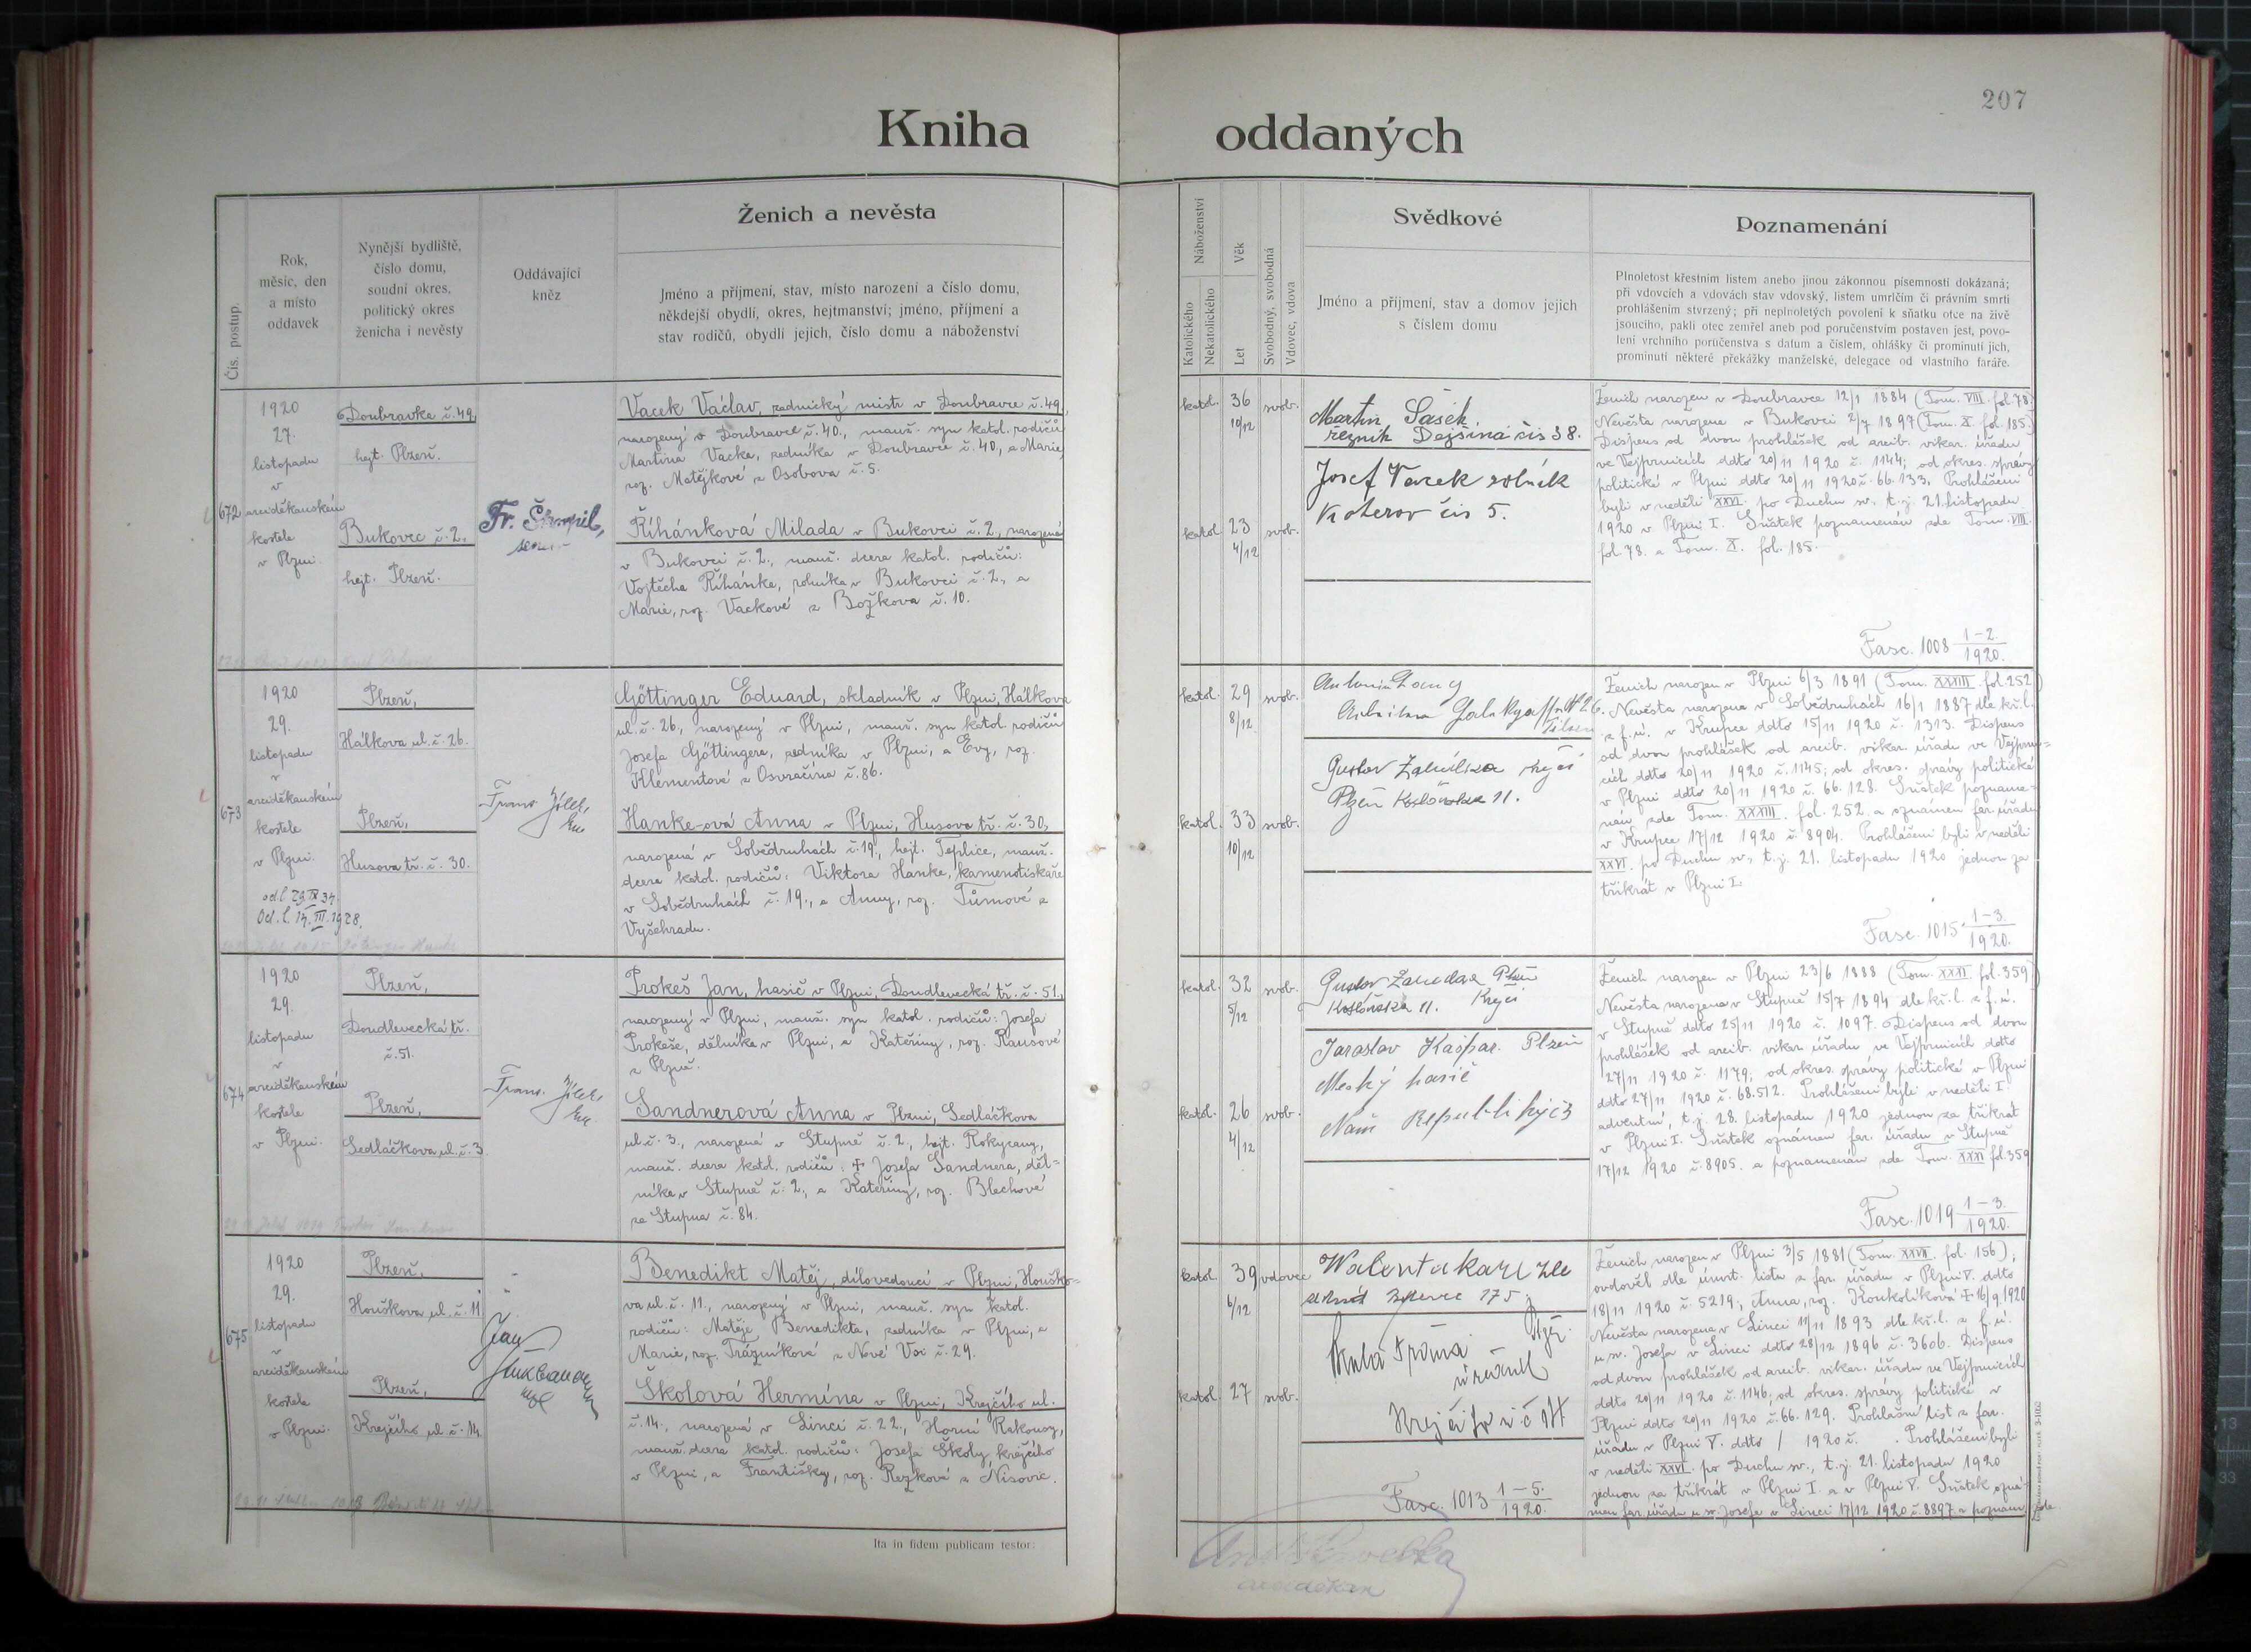 207
Kniha oddaných
Čís. postup.
Rok,
měsíc, den
a místo
oddavek
Nynější bydliště,
číslo domu,
soudní okres,
politický okres
ženicha i nevěsty
Oddávající
kněz
Ženich a nevěsta
Jméno a příjmení, stav, místo narození a číslo domu,
někdejší obydlí, okres, hejtmanství; jméno, příjmení a
stav rodičů, obydlí jejich, číslo domu a náboženství
Náboženství
Katolického
Nekatolického
Věk
Let
Svobodný, svobodná
Vdovec, vdova
Svědkové
Jméno a příjmení, stav a domov jejich
s číslem domu
Poznamenání
Plnoletost křestním listem anebo jinou zákonnou písemností dokázaná;
při vdovcích a vdovách stav vdovský, listem umrlčím či právním smrti
prohlášením stvrzený; při neplnoletých povolení k sňatku otce na živě
jsoucího, pakli otec zemřel aneb pod poručenstvím postaven jest, povo-
lení vrchního poručenstva s datum a číslem, ohlášky či prominutí jich,
prominutí některé překážky manželské, delegace od vlastního faráře.
672
1920
27.
listopadu
v
arciděkanském
kostele
v Plzni.
Doubravka č. 49,
hejt. Plzeň.
Bukovec č. 2.,
hejt. Plzeň.
Fr.
Vacek Václav, zednický mistr v Doubravce č. 49,
narozený v Doubravce č. 40., manž. syn katol. rodičů
Martina Vacka, zedníka v Doubravce č. 40., a Marie,
roz. Matějkové z Osobova č. 5.
Říhánková Milada v Bukovci č. 2., narozená
v Bukovci č. 2., manž. dcera katol. rodičů:
Vojtěcha Říhánka, rolníka v Bukovci č. 2., a
Marie, roz. Vackové z Božkova č. 10.
katol. 36 10/12 svob.
katol. 23 4/12 svob.
Martin Sašek
řezník Dejšina čis 38.
Josef Vacek rolník
Koterov čis 5.
Ženich narozen v Doubravce 12/1 1884 (Tom. VIII. fol. 78.)
Nevěsta narozena v Bukovci 2/7 1897 (Tom. X. fol. 185.)
Dispens od dvou prohlášek od arcib. vikar. úřadu
ve Vejprnicích ddto 20/11 1920 č. 1144; od okres. správy
politické v Plzni ddto 20/11 1920 č. 66.133. Prohlášeni
byli v neděli XXVI. po Duchu sv. t. j. 21. listopadu
1920 v Plzni I. Sňatek poznamenán zde Tom. VIII.
fol. 78. a Tom. X. fol. 185.
Fasc. 1008 1-2./1920.
673
1920
29.
listopadu
v
arciděkanském
kostele
v Plzni.
Od. l. 14. III. 1928.
Plzeň,
Hálkova ul. č. 26.
Plzeň,
Husova tř. č. 30.
Göttinger Eduard, skladník v Plzni, Hálkova
ul. č. 26, narozený v Plzni, manž. syn katol. rodičů
Josefa Göttingera, zedníka v Plzni, a Evy, roz.
Klementové z Osvračína č. 86.
Hanke-ová Anna v Plzni, Husova tř. č. 30,
narozená v Sobědruhách č. 19, hejt. Teplice, manž.
dcera katol. rodičů: Viktora Hanke, kamenotiskaře
v Sobědruhách č. 19., a Anny, roz. Tůmové z
Vyšehradu.
katol. 29 8/12 svob.
katol. 33 10/12 svob.
Antonín
Gustav
Plzeň 11.
Ženich narozen v Plzni 6/3 1891 (Tom. XXXIII. fol. 252.)
Nevěsta narozena v Sobědruhách 16/1 1887 dle kř. l.
z f. ú. v Krupce ddto 15/11 1920 č. 1313. Dispens
od dvou prohlášek od arcib. vikar. úřadu ve Vejprni-
cích ddto 20/11 1920 č. 1145; od okres. správy politické
v Plzni ddto 20/11 1920 č. 66.128. Sňatek pozname-
nán zde Tom. XXXIII. fol. 252. a oznámen far. úřadu
v Krupce 17/12 1920 č. 8904. Prohlášeni byli v neděli
XXVI. po Duchu sv., t. j. 21. listopadu 1920 jednou za
třikrát v Plzni I.
Fasc. 1015 1-3./1920.
674
1920
29.
listopadu
v
arciděkanském
kostele
v Plzni.
Plzeň,
Doudlevecká tř.
č. 51.
Plzeň,
Sedláčkova ul. č. 3.
Prokeš Jan, hasič v Plzni, Doudlevecká tř. č. 51.,
narozený v Plzni, manž. syn katol. rodičů: Josefa
Prokeše, dělníka v Plzni, a Kateřiny, roz. Rausové
z Plzně.
Sandnerová Anna v Plzni, Sedláčkova
ul. č. 3., narozená v Stupně č. 2., hejt. Rokycany,
manž. dcera katol. rodičů: † Josefa Sandnera, děl-
níka v Stupně č. 2., a Kateřiny, roz. Blechové
ze Stupna č. 84.
katol. 32 5/12 svob.
katol. 26 4/12 svob.
Gustav Plzeň
11. Krejčí
Jaroslav Kašpar. Plzeň
Měský hasič
Nám Republiky čís
Ženich narozen v Plzni 23/6 1888 (Tom. XXXI. fol. 359)
Nevěsta narozena v Stupně 15/7 1894 dle kř. l. z f. ú.
v Stupně ddto 25/11 1920 č. 1097. Dispens od dvou
prohlášek od arcib. vikar. úřadu ve Vejprnicích ddto
27/11 1920 č. 1179; od okres. správy politické v Plzni
ddto 27/11 1920 č. 68.512. Prohlášeni byli v neděli I.
adventní, t. j. 28. listopadu 1920 jednou za třikrát
v Plzni I. Sňatek oznámen far. úřadu v Stupně
17/12 1920 č. 8905. a poznamenán zde Tom. XXXI fol. 359
Fasc. 1019 1-3./1920.
675
1920
29.
listopadu
v
arciděkanském
kostele
v Plzni.
Plzeň,
Houškova ul. č. 11
Plzeň,
Krejčího ul. č. 14.
Jan
Benedikt Matěj, dílovedoucí v Plzni, Houško-
va ul. č. 11., narozený v Plzni, manž. syn katol.
rodičů: Matěje Benedikta, zedníka v Plzni, a
Marie, roz. Trázníkové z Nové Vsi č. 29.
Školová Hermína v Plzni, Krejčího ul.
č. 14., narozená v Linci č. 22., Horní Rakousy,
manž. dcera katol. rodičů: Josefa Školy, krejčího
v Plzni, a Františky, roz. Rezkové z Nisovic.
katol. 39 6/12 vdovec
katol. 27 svob.
Walenta Karel
175
úředník
Fasc. 1013 1-5./1920.
Ženich narozen v Plzni 3/5 1881 (Tom. XXVII. fol. 156);
ovdověl dle úmrt. listu z far. úřadu v Plzni V. ddto
18/11 1920 č. 5219; Anna, roz. Koukolíková † 16/9 1920
Nevěsta narozena v Linci 11/11 1893 dle kř. l. z f. ú.
u sv. Josefa v Linci ddto 28/12 1896 č. 3606. Dispens
od dvou prohlášek od arcib. vikar. úřadu ve Vejprnicích
ddto 20/11 1920 č. 1146; od okres. správy politické v
Plzni ddto 20/11 1920 č. 66.129. Prohlášní list z far.
úřadu v Plzni V. ddto / 1920 č. . Prohlášeni byli
v neděli XXVI. po Duchu sv., t. j. 21. listopadu 1920
jednou za třikrát v Plzni I. a v Plzni V. Sňatek ozná-
men far. úřadu u sv. Josefa v Linci 17/12 1920 č. 8897 a poznam. zde.
Ita in fidem publicam testor:
arciděkan